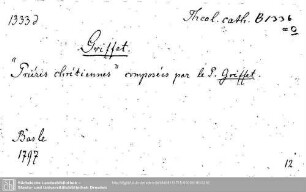 1333d
Theol. cath. B 1336
=0
Griffet.
"Prières chrétiennes" composées par le P. Griffet.
Basle
1797
12°
Sächsische Landesbibliothek -
Staats- und Universitätsbibliothek Dresden